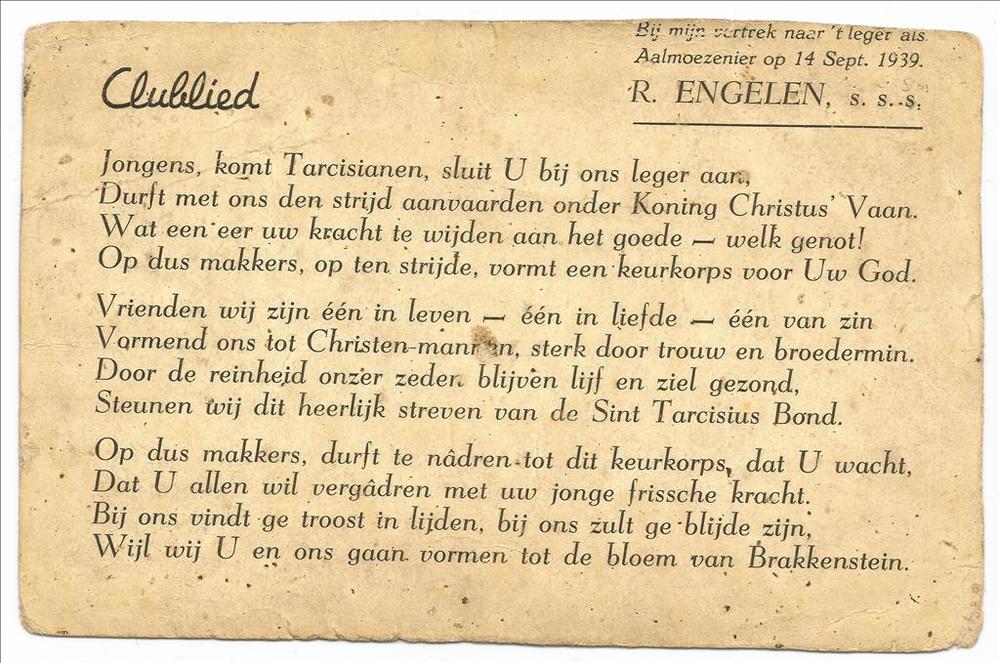 Bij mijn vertrek naar 't leger als
Aalmoezenier op 14 Sept. 1939.
R. ENGELEN, s. s. s.
Clublied
Jongens, komt Tarcisianen, sluit U bij ons leger aan,
Durft met ons den strijd aanvaarden onder Koning Christus' Vaan.
Wat een eer uw kracht te wijden aan het goede — welk genot!
Op dus makkers, op ten strijde, vormt een keurkorps voor Uw God.
Vrienden wij zijn één in leven — één in liefde — één van zin
Vormend ons tot Christen-mannen, sterk door trouw en broedermin.
Door de reinheid onzer zeden blijven lijf en ziel gezond,
Steunen wij dit heerlijk streven van de Sint Tarcisius Bond.
Op dus makkers, durft te nâdren tot dit keurkorps, dat U wacht,
Dat U allen wil vergâdren met uw jonge frissche kracht.
Bij ons vindt ge troost in lijden, bij ons zult ge blijde zijn,
Wijl wij U en ons gaan vormen tot de bloem van Brakkenstein.